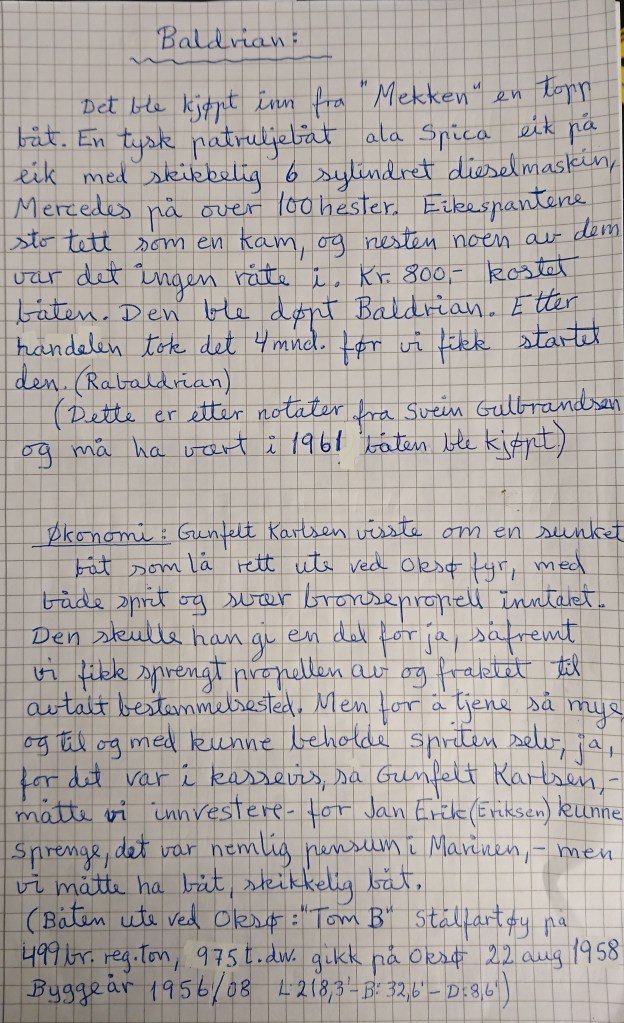 Baldrian:
Det ble kjøpt inn fra "Mekken" en topp
båt. En tysk patruljebåt ala Spica eik på
eik med skikkelig 6 sylindret dieselmaskin,
Mercedes på over 100 hester. Eikespantene
sto tett som en kam, og nesten noen av dem
var det ingen råte i. Kr. 800,- kostet
båten. Den ble døpt Baldrian. Etter
handelen tok det 4 mnd. før vi fikk startet
den. (Rabaldrian)
(Dette er etter notater fra Svein Gulbrandsen
og må ha vært i 1961 båten ble kjøpt)
Økonomi: Gunfelt Karlsen visste om en sunket
båt som lå rett ute ved Oksø fyr, med
både sprit og svær bronsepropell inntaket.
Den skulle han gi en del for ja, såfremt
vi fikk sprengt propellen av og fraktet til
avtalt bestemmelsested. Men for å tjene så mye
og til og med kunne beholde spriten selv, ja,
for det var i kassevis, sa Gunfelt Karlsen,-
måtte vi innvestere- for Jan Erik (Eriksen) kunne
sprenge, det var nemlig pensum i Marinen,- men
vi måtte ha båt, skikkelig båt.
(Båten ute ved Oksø: "Tom B" Stålfartøy på
499 br. reg. ton, 975 t.dw. gikk på Oksø 22 aug 1958
Byggeår 1956/08 L: 218,3'- B: 32,6'- D: 8,6')